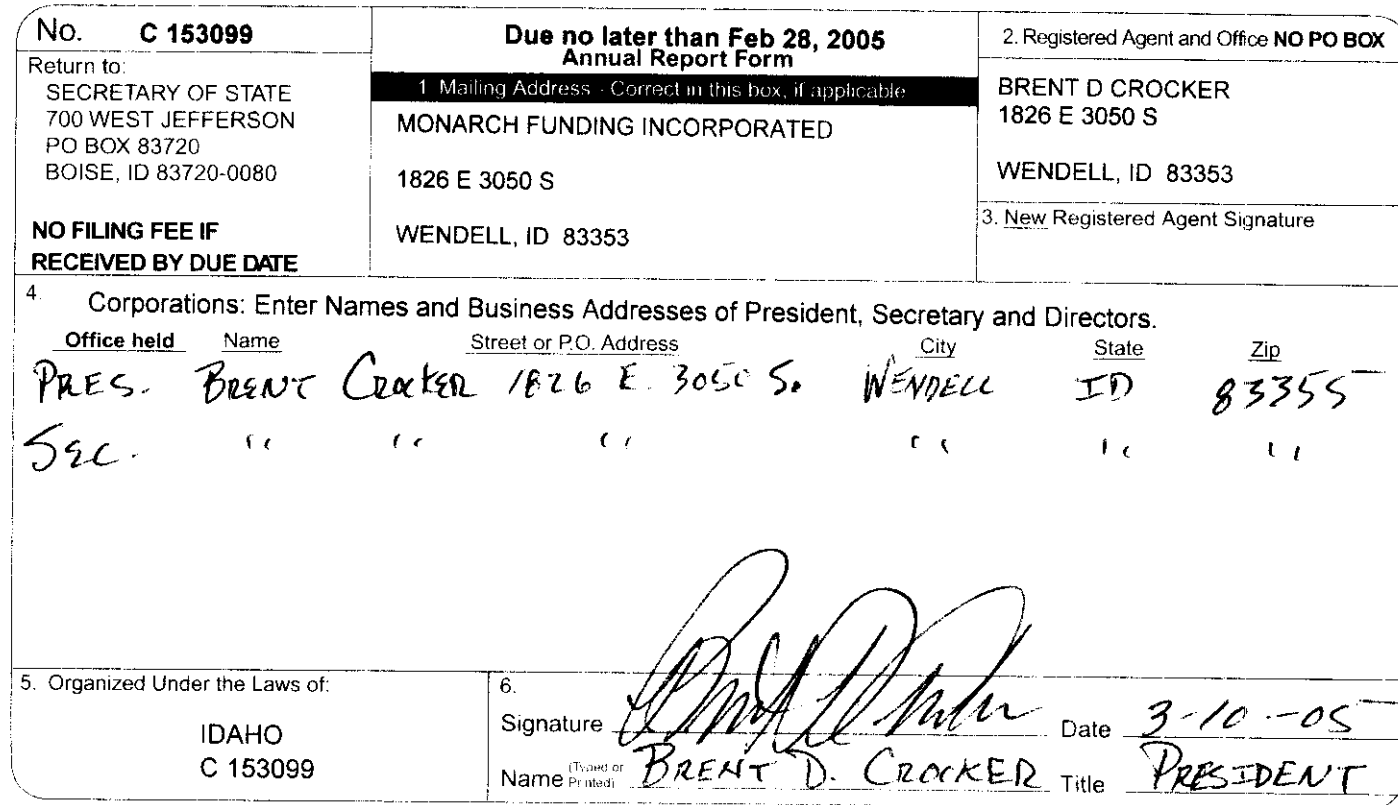 No. C 153099
Return to:
SECRETARY OF STATE
700 WEST JEFFERSON
PO BOX 83720
BOISE, ID 83720-0080
NO FILING FEE IF
RECEIVED BY DUE DATE
Due no later than Feb 28, 2005
Annual Report Form
1 Mailing Address - Correct in this box, if applicable
MONARCH FUNDING INCORPORATED
1826 E 3050 S
WENDELL, ID 83353
2. Registered Agent and Office NO PO BOX
BRENT D CROCKER
1826 E 3050 S
WENDELL, ID 83353
3. New Registered Agent Signature
4. Corporations: Enter Names and Business Addresses of President, Secretary and Directors.
Office held Name Street or P.O. Address City State Zip
PRES. BRENT CROCKER 1826 E. 3050 S. WENDELL ID 83355
SEC. " " " " " "
5. Organized Under the Laws of:
IDAHO
C 153099
6.
Signature Date 3-10-05
Name (Typed or Printed) BRENT D. CROCKER Title PRESIDENT